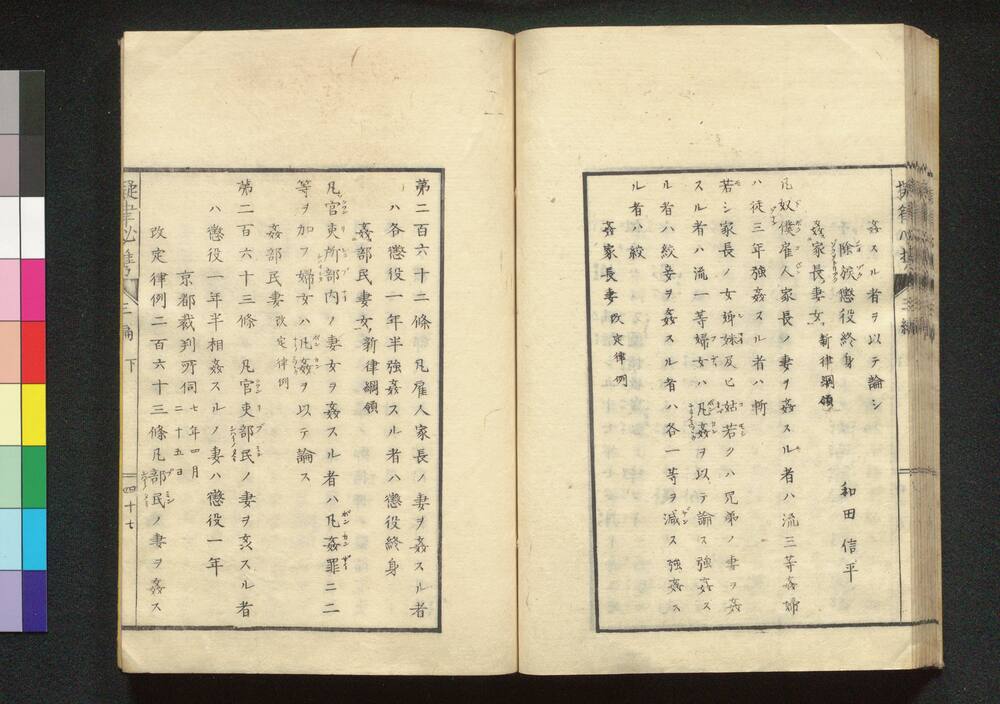 姦スル者ヲ以テ論シ
除族懲役終身
和田信平
姦家長妻女 新律綱領
凡奴僕雇人家長ノ妻ヲ姦スル者ハ流三等姦婦
ハ徒三年強姦スル者ハ斬
若シ家長ノ女姉妹及ヒ姑若クハ兄弟ノ妻ヲ姦
スル者ハ流一等婦女ハ凡姦ヲ以テ論ス強姦ス
ル者ハ絞妾ヲ姦スル者ハ各一等ヲ減ス強姦ス
ル者ハ絞
姦家長妻 改定律例
第二百六十二條 凡雇人家長ノ妻ヲ姦スル者
ハ各懲役一年半強姦スル者ハ懲役終身
姦部民妻女 新律綱領
凡官吏所部内ノ妻女ヲ姦スル者ハ凡姦罪ニ二
等ヲ加フ婦女ハ凡姦ヲ以テ論ス
姦部民妻 改定律例
第二百六十三條 凡官吏部民ノ妻ヲ姦スル者
ハ懲役一年半相姦スルノ妻ハ懲役一年
京都裁判所伺 七年四月二十五日
改定律例二百六十三條凡部民ノ妻ヲ姦ス
擬律必携 三編 下
四十七